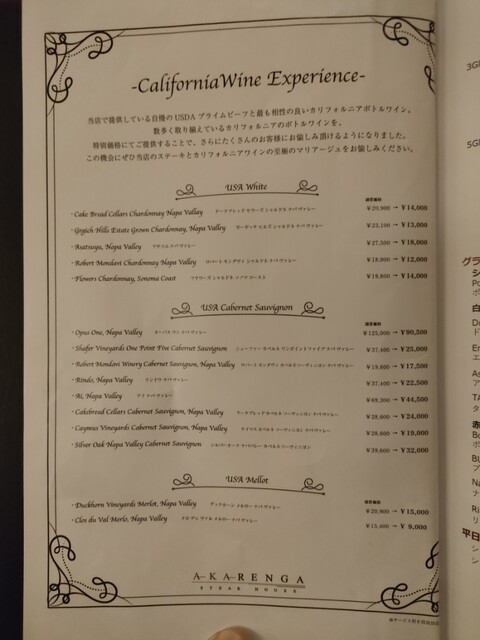 -CaliforniaWine Experience-
当店で提供している自慢のUSDAプライムビーフと最も相性の良いカリフォルニアボトルワイン。
数多く取り揃えているカリフォルニアのボトルワインを、
特別価格にてご提供することで、さらにたくさんのお客様にお愉しみ頂けるようになりました。
この機会にぜひ当店のステーキとカリフォルニアワインの至極のマリアージュをお愉しみください。
USA White
通常価格
・Cake Bread Cellars Chardonnay Napa Valley ケークブレッド セラーズ シャルドネ ナパ ヴァレー ¥20,900 → ¥14,000
・Grgich Hills Estate Grown Chardonnay, Napa Valley ガーギッチ ヒルズ シャルドネ ナパ ヴァレー ¥23,100 → ¥15,000
・Asatsuya, Napa Valley アサツユ ナパ ヴァレー ¥27,500 → ¥18,000
・Robert Mondavi Chardonnay Napa Valley ロバート モンダヴィ シャルドネ ナパ ヴァレー ¥18,000 → ¥12,000
・Flowers Chardonnay, Sonoma Coast フラワーズ シャルドネ ソノマ コースト ¥19,800 → ¥14,000
USA Cabernet Sauvignon
通常価格
・Opus One, Napa Valley オーパス ワン ナパ ヴァレー ¥125,000 → ¥90,500
・Shafer Vineyards One Point Five Cabernet Sauvignon シェーファー カベルネ ワンポイントファイブ ナパ ヴァレー ¥37,400 → ¥25,000
・Robert Mondavi Winery Cabernet Sauvignon, Napa Valley ロバート モンダヴィ カベルネ ソーヴィニヨン ナパ ヴァレー ¥19,800 → ¥17,500
・Rindo, Napa Valley リンドウ ナパ ヴァレー ¥37,400 → ¥22,500
・Ai, Napa Valley アイ ナパ ヴァレー ¥69,300 → ¥44,500
・Cakebread Cellars Cabernet Sauvignon, Napa Valley ケークブレッド カベルネ ソーヴィニヨン ナパ ヴァレー ¥28,600 → ¥24,000
・Caymus Vineyards Cabernet Sauvignon, Napa Valley ケイマス カベルネ ソーヴィニヨン ナパ ヴァレー ¥28,600 → ¥19,000
・Silver Oak Napa Valley Cabernet Sauvignon シルバーオーク ナパ バレー カベルネ ソーヴィニヨン ¥39,600 → ¥32,000
USA Mellot
通常価格
・Duckhorn Vineyards Merlot, Napa Valley ダックホーン メルロー ナパ ヴァレー ¥20,900 → ¥15,000
・Clos du Val Merlo, Napa Valley クロ デュ ヴァル メルロー ナパ ヴァレー ¥15,000 → ¥9,000
AKARENGA
STEAK HOUSE
3G
5G
グラ
白
赤
平日